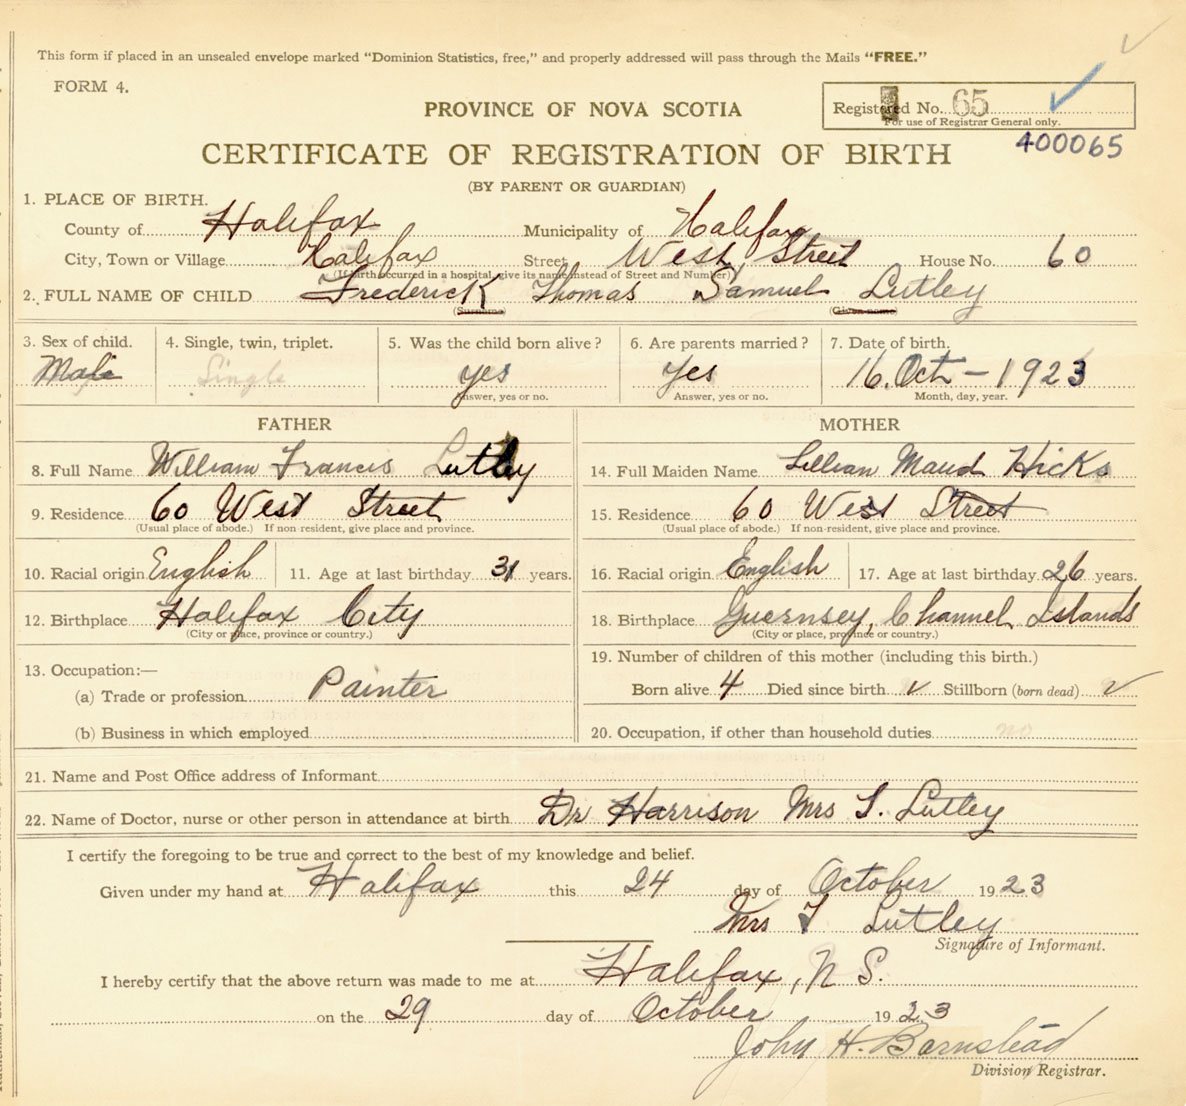 This form if placed in an unsealed envelope marked "Dominion Statistics, free," and properly addressed will pass through the Mails "FREE."
FORM 4.
PROVINCE OF NOVA SCOTIA
Registered No. 65
For use of Registrar General only.
400065
CERTIFICATE OF REGISTRATION OF BIRTH
(BY PARENT OR GUARDIAN)
1. PLACE OF BIRTH.
County of Halifax Municipality of Halifax
City, Town or Village Halifax Street West Street House No. 60
(If birth occurred in a hospital, give its name instead of Street and Number)
2. FULL NAME OF CHILD Frederick Thomas Samuel Lutley
(Surname) (Given name)
3. Sex of child. 4. Single, twin, triplet. 5. Was the child born alive? 6. Are parents married? 7. Date of birth.
Male Single yes Yes 16. Oct - 1923
Answer, yes or no. Answer, yes or no. Month, day, year.
FATHER MOTHER
8. Full Name William Francis Lutley 14. Full Maiden Name Lillian Maud Hicks
9. Residence 60 West Street 15. Residence 60 West Street
(Usual place of abode.) If non resident, give place and province. (Usual place of abode.) If non-resident, give place and province.
10. Racial origin English 11. Age at last birthday 31 years. 16. Racial origin English 17. Age at last birthday 26 years.
12. Birthplace Halifax City 18. Birthplace Guernsey, Channel Islands
(City or place, province or country.) (City or place, province or country.)
13. Occupation:— 19. Number of children of this mother (including this birth.)
(a) Trade or profession Painter Born alive 4 Died since birth ✓ Stillborn (born dead) ✓
(b) Business in which employed 20. Occupation, if other than household duties no
21. Name and Post Office address of Informant
22. Name of Doctor, nurse or other person in attendance at birth Dr Harrison Mrs T. Lutley
I certify the foregoing to be true and correct to the best of my knowledge and belief.
Given under my hand at Halifax this 24 day of October 1923
Mrs T Lutley
Signature of Informant.
I hereby certify that the above return was made to me at Halifax, N S.
on the 29 day of October 1923
John H. Barnstead
Division Registrar.